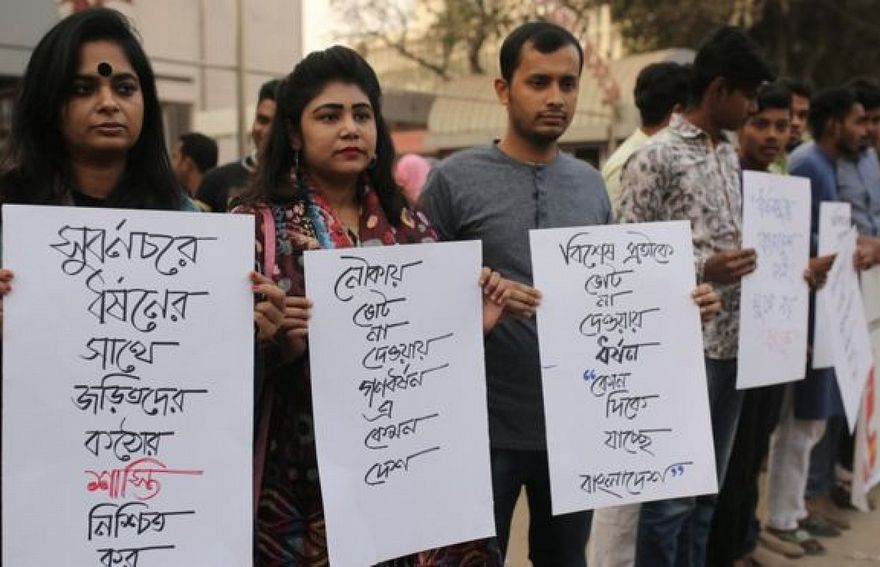 সুবর্নচরে
ধর্ষনের
সাথে
জড়িতদের
কঠোর
শাস্তি
নিশ্চিত
কর
নৌকায়
ভোট
না
দেওয়ায়
গণধর্ষন
এ
কেমন
দেশ
বিশেষ প্রতীকে
ভোট
না
দেওয়ায়
ধর্ষন
“কোন
দিকে
যাচ্ছে
বাংলাদেশ”